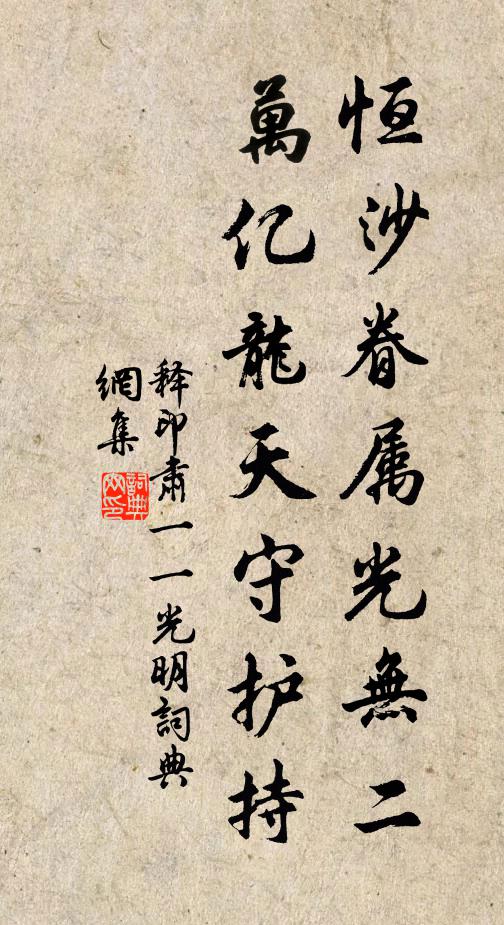 恒沙眷属光無二
萬亿龍天守护持
释印肃一一光明詞典
網集
詞典
网印